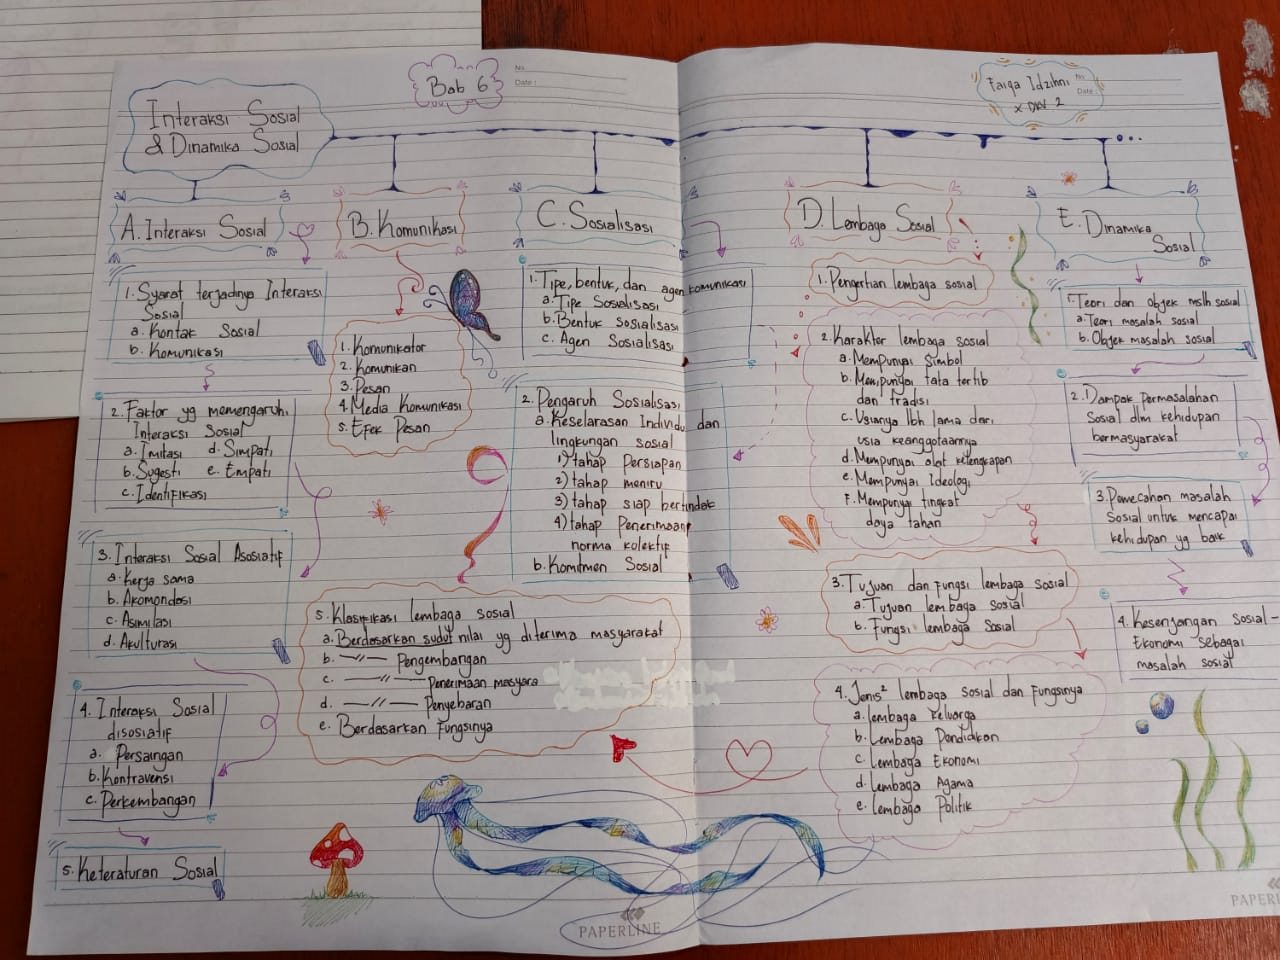 Bab 6
No.
Date :
Faiqa Idzihni
No
Date :
Interaksi Sosial
& Dinamika Sosial
A. Interaksi Sosial
1. Syarat terjadinya Interaksi
Sosial
a. Kontak Sosial
b. Komunikasi
2. Faktor yg memengaruhi
Interaksi Sosial
a. Imitasi d. Simpati
b. Sugesti e. Empati
c. Identifikasi
3. Interaksi Sosial Asosiatif
a. Kerja sama
b. Akomondasi
c. Asimilasi
d. Akulturasi
4. Interaksi Sosial
disosiatif
a. Persaingan
b. Kontravensi
c. Perkembangan
5. Keteraturan Sosial
B. Komunikasi
1. Komunikator
2. Komunikan
3. Pesan
4. Media Komunikasi
5. Efek Pesan
C. Sosialisasi
1. Tipe, bentuk, dan agen komunikasi
a. Tipe Sosialisasi
b. Bentuk sosialisasi
c. Agen Sosialisasi
2. Pengaruh Sosialisasi
a. Keselarasan Individu dan
lingkungan sosial
1) tahap Persiapan
2) tahap meniru
3) tahap siap bertindak
4) tahap Penerimaan
norma kolektif
b. Komitmen Sosial
D. Lembaga Sosial
1. Pengertian lembaga sosial
2. Karakter lembaga sosial
a. Mempunyai Simbol
b. Mempunyai tata tertib
dan tradisi
c. Usianya lbh lama dari
usia keanggotaannya
d. Mempunyai alat kelengkapan
e. Mempunyai Ideologi
f. Mempunyai tingkat
daya tahan
3. Tujuan dan fungsi lembaga sosial
a. Tujuan lembaga sosial
b. Fungsi lembaga Sosial
4. Jenis² lembaga sosial dan fungsinya
a. lembaga keluarga
b. Lembaga Pendidikan
c. Lembaga Ekonomi
d. Lembaga Agama
e. Lembaga Politik
5. Klasifikasi lembaga sosial
a. Berdasarkan sudut nilai yg diterima masyarakat
b. —//— Pengembangan
c. —//— Penerimaan masyara
d. —//— Penyebaran
e. Berdasarkan Fungsinya
E. Dinamika
Sosial
1. Teori dan Objek mslh sosial
a. Teori masalah sosial
b. Objek masalah sosial
2. Dampak Permasalahan
Sosial dlm kehidupan
bermasyarakat
3. Pemecahan masalah
Sosial untuk mencapai
kehidupan yg baik
4. Kesenjangan Sosial -
Ekonomi sebagai
masalah sosial
PAPERLINE
PAPERL